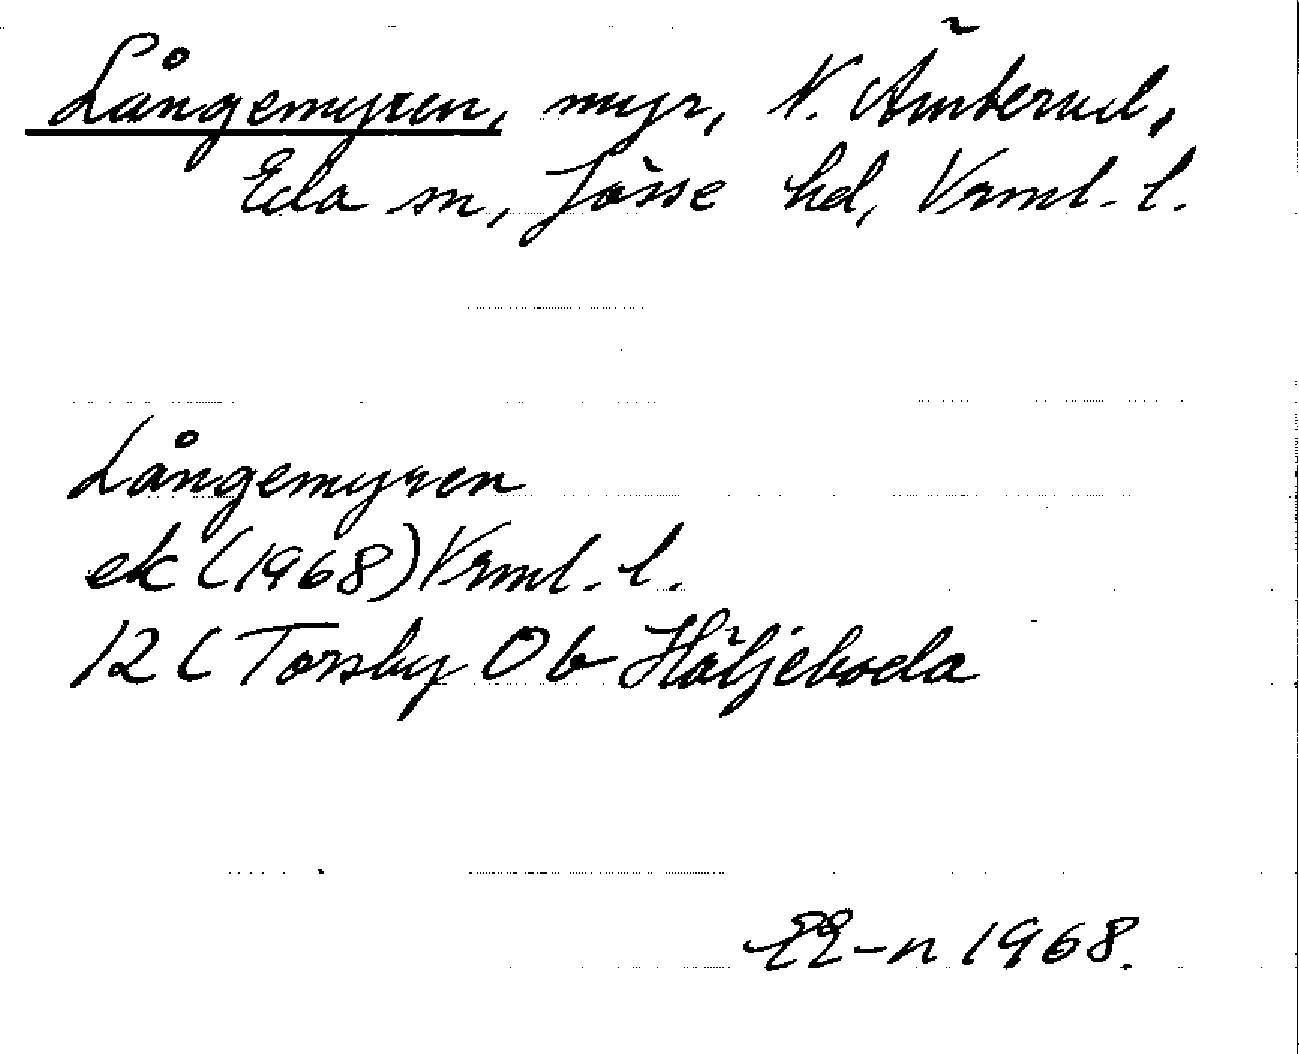 Långemyren, myr, N. Ämterud,
Eda sn, Jösse hd, Vrml. l.
Långemyren
ek (1968) Vrml. l.
12 C Torsby 0 b Häljeboda
EE-n 1968.